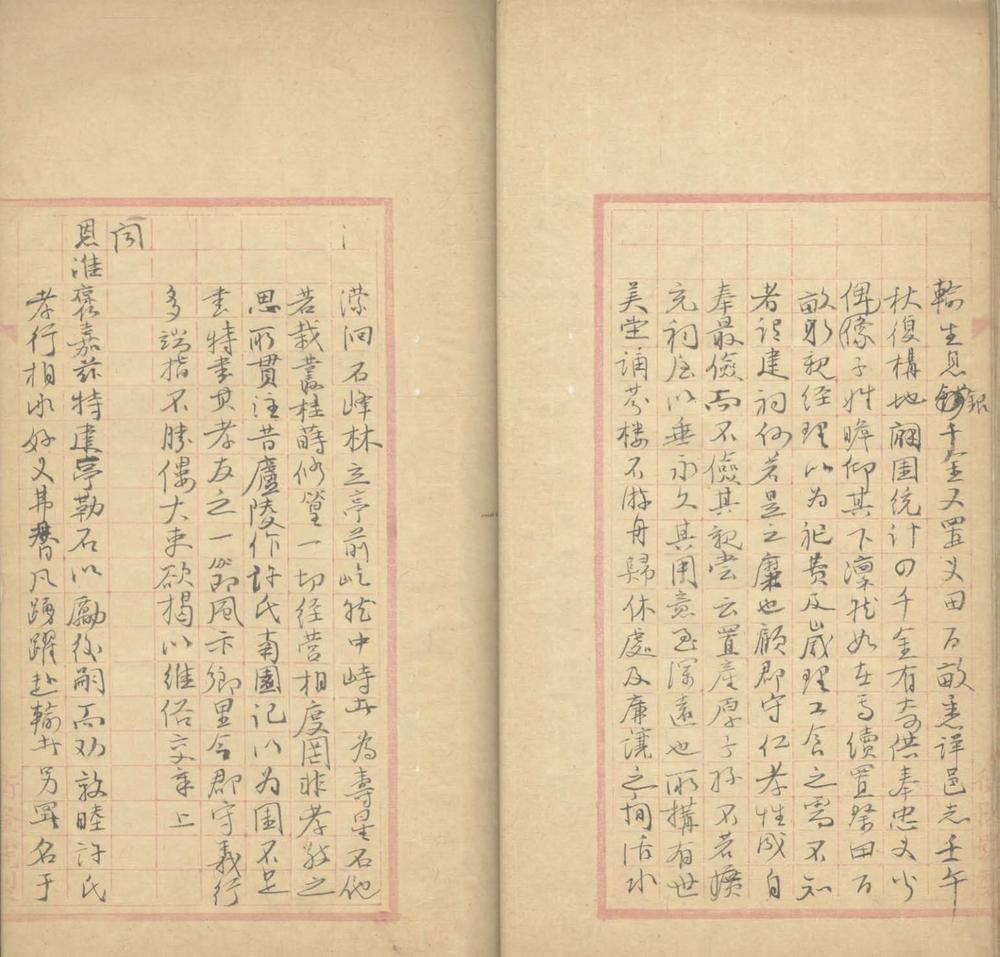 輸生息銀千金又置义田百畝悉詳邑志壬午
秋復構地廟園统计四千金有奇供奉忠义少
偶像子姓瞻仰其下凜然如在焉續置祭田百
畝躬親经理以为祀费及歲理工食之需不知
者謂建祠何若是之糜也顧郡守仁孝性成自
奉最儉而不儉其親嘗云置產厚子孫不若擴
充祠屋以垂永久其用意至深遠也所搆有世
美堂诵芬楼不游舟歸休處及廉讓之间活水
瀠洄石峰林立亭前屹然中峙者为壽星石他
若栽叢桂蒔修篁一切经营相度罔非孝敬之
思所貫注昔廬陵作許氏南園记以为園不足
書特書其孝友之一節風示鄉里今郡守義行
多端指不勝僂大吏欲揭以维俗交章上
闻
恩准褒嘉兹特建亭勒石以勵後嗣而劝敦睦許氏
孝行相承好义弗替凡踴躍赴輸者另署名于